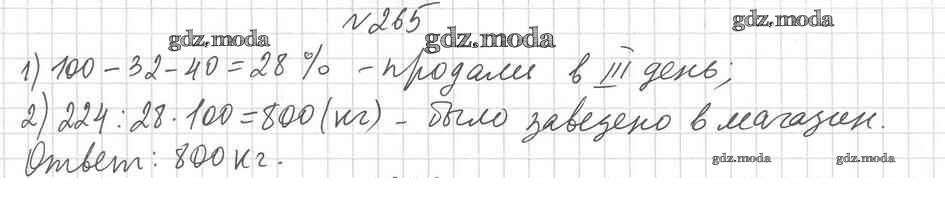 №265
gdz.moda gdz.moda gdz.moda
1) 100-32-40=28% - продали в III день;
2) 224:28·100=800(кг) - было завезено в магазин.
Ответ: 800кг.
gdz.moda gdz.moda